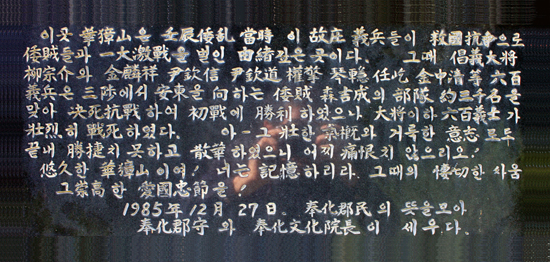 이곳 華獐山은 壬辰倭乱 當時 이 故庄 義兵들이 救國抗爭으로
倭賊들과 一大激戰을 벌인 由緖깊은 곳이다. 그때 倡義大将
柳宗介와 金麟祥 尹欽信 尹欽道 權 琴 任屹 金中清 等 六百
義兵은 三陟에서 安東을 向하는 倭賊 森吉成의 部隊 約三千名을
맞아 决死抗戰하여 初戰에 勝利하였으나 大將이하 六百義士가
壯烈히 戰死하였다. 아-그 壯한 氣槪와 거룩한 意志 모두
끝내 勝捷치 못하고 散華하였으니 어찌 痛恨치 않으리오!
悠久한 華獐山이여! 너는 記憶하리라. 그때의 悽切한 싸움
그 崇高한 愛國忠節을!
1985年 12月 27日. 奉化郡民의 뜻을 모아
奉化郡守와 奉化文化院長이 세우다.